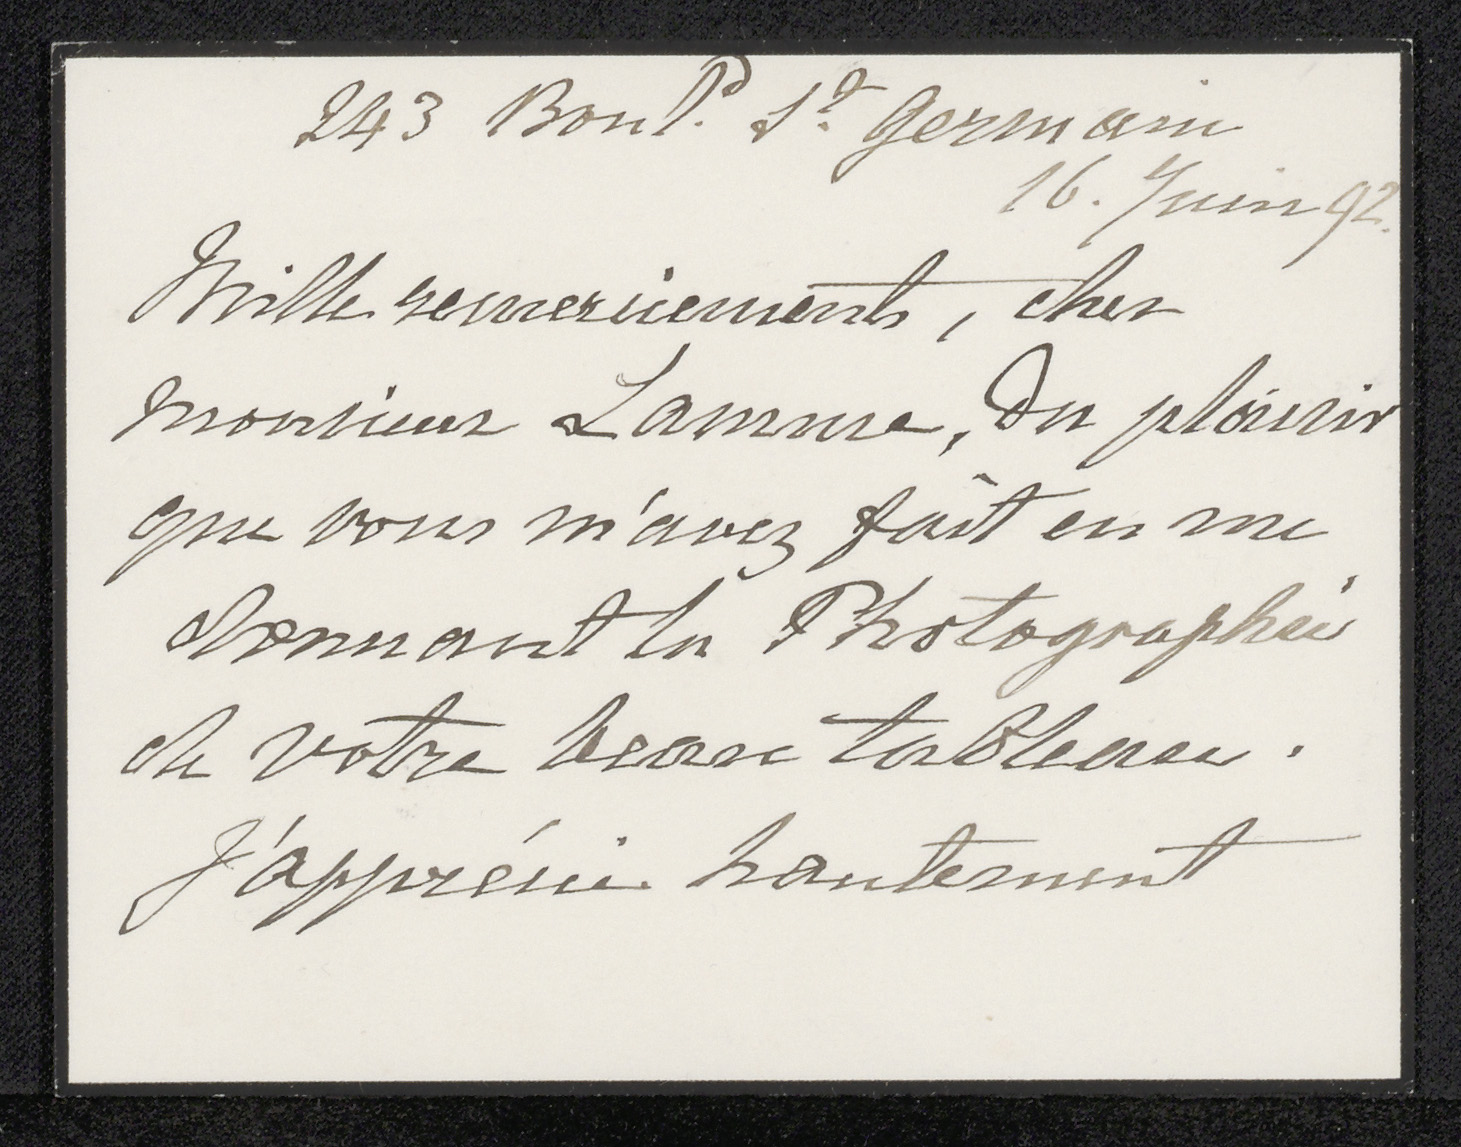 243 Boul.d St. Germain
16. Juin 92.
Mille remerciements, cher
monsieur Lamme, du plaisir
que vous m'avez fait en me
donnant la Photographie
de votre beau tableau.
J'apprécie hautement